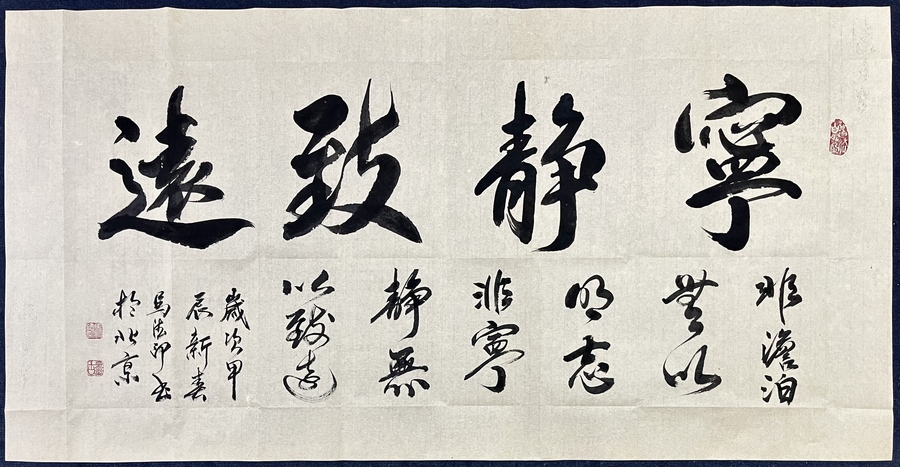 寧静致遠
非澹泊
無以
明志
非寧
静無
以致遠
歲次甲
辰新春
馬 书
於北京